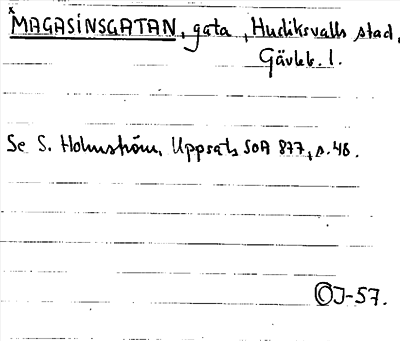 x
MAGASINSGATAN, gata, Hudiksvalls stad,
Gävleb. l.
Se S. Holmström, Uppsats SOA 877, s. 48.
OJ-57.